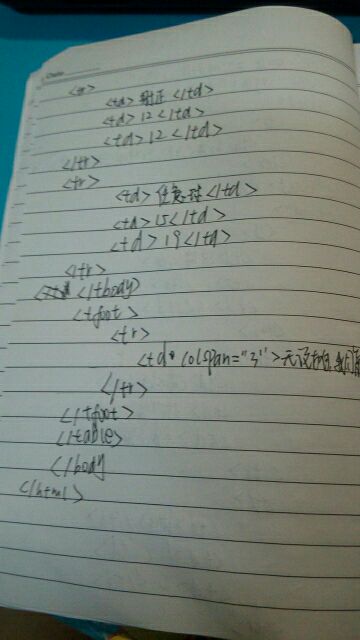 Date
<tr>
<td> 补正 </td>
<td> 12 </td>
<td> 12 </td>
</tr>
<tr>
<td> 任意球 </td>
<td> 15 </td>
<td> 19 </td>
</tr>
</tbody>
<tfoot>
<tr>
<td colpan="3">
</tr>
</tfoot>
</table>
</body
</html>